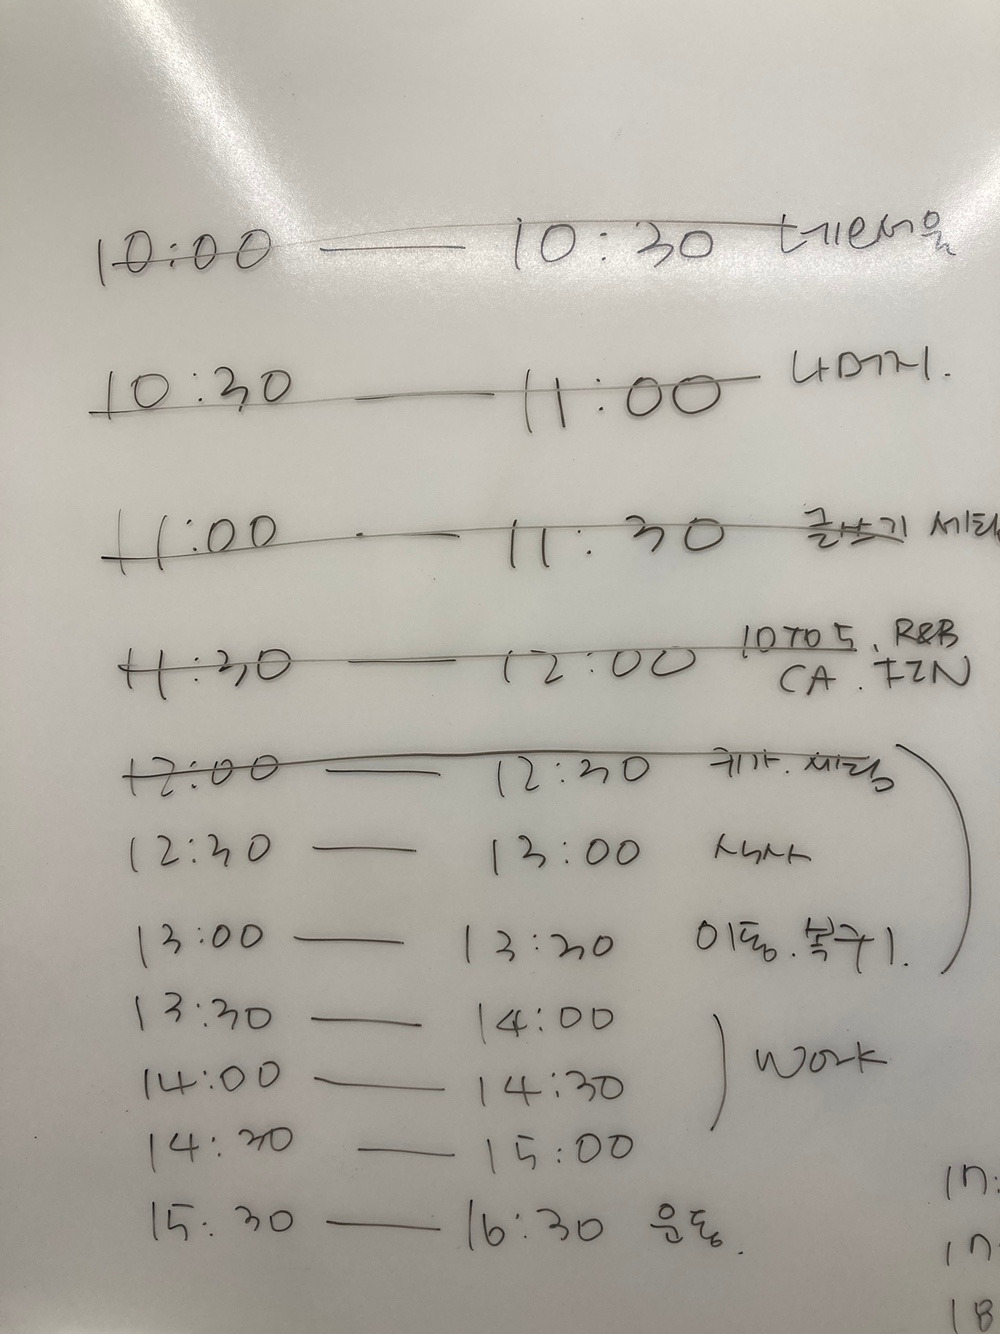 10:00 — 10:30
10:30 — 11:00 나머지.
11:00 — 11:30 글쓰기 세팅
11:30 — 12:00 10 TO 5. R&B
CA. FZN
12:00 — 12:30 귀가. 세팅
12:30 — 13:00 식사
13:00 — 13:30 이동. 복귀.
13:30 — 14:00
14:00 — 14:30 work
14:30 — 15:00
15:30 — 16:30 운동.
17:
17:
18